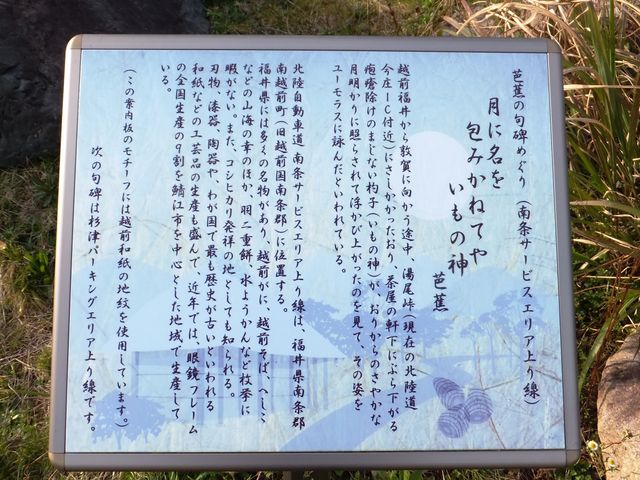 芭蕉の句碑めぐり (南条サービスエリア上り線)
月に名を
包みかねてや
いもの神
芭蕉
越前福井から敦賀に向かう途中、湯尾峠(現在の北陸道
今庄IC付近)にさしかかったおり、茶屋の軒下にぶら下がる
疱瘡除けのまじない杓子(いもの神)が、おりからのさやかな
月明かりに照らされて浮かび上がったのを見て、その姿を
ユーモラスに詠んだといわれている。
北陸自動車道 南条サービスエリア上り線は、福井県南条郡
南越前町(旧越前国南条郡)に位置する。
福井県には多くの名物があり、越前がに、越前そば、へしこ
などの山海の幸のほか、羽二重餅、水ようかんなど枚挙に
暇がない。また、コシヒカリ発祥の地としても知られる。
刃物、漆器、陶器や、わが国で最も歴史が古いといわれる
和紙などの工芸品の生産も盛んで、近年では、眼鏡フレーム
の全国生産の9割を鯖江市を中心とした地域で生産して
いる。
(この案内板のモチーフには越前和紙の地紋を使用しています。)
次の句碑は杉津パーキングエリア上り線です。